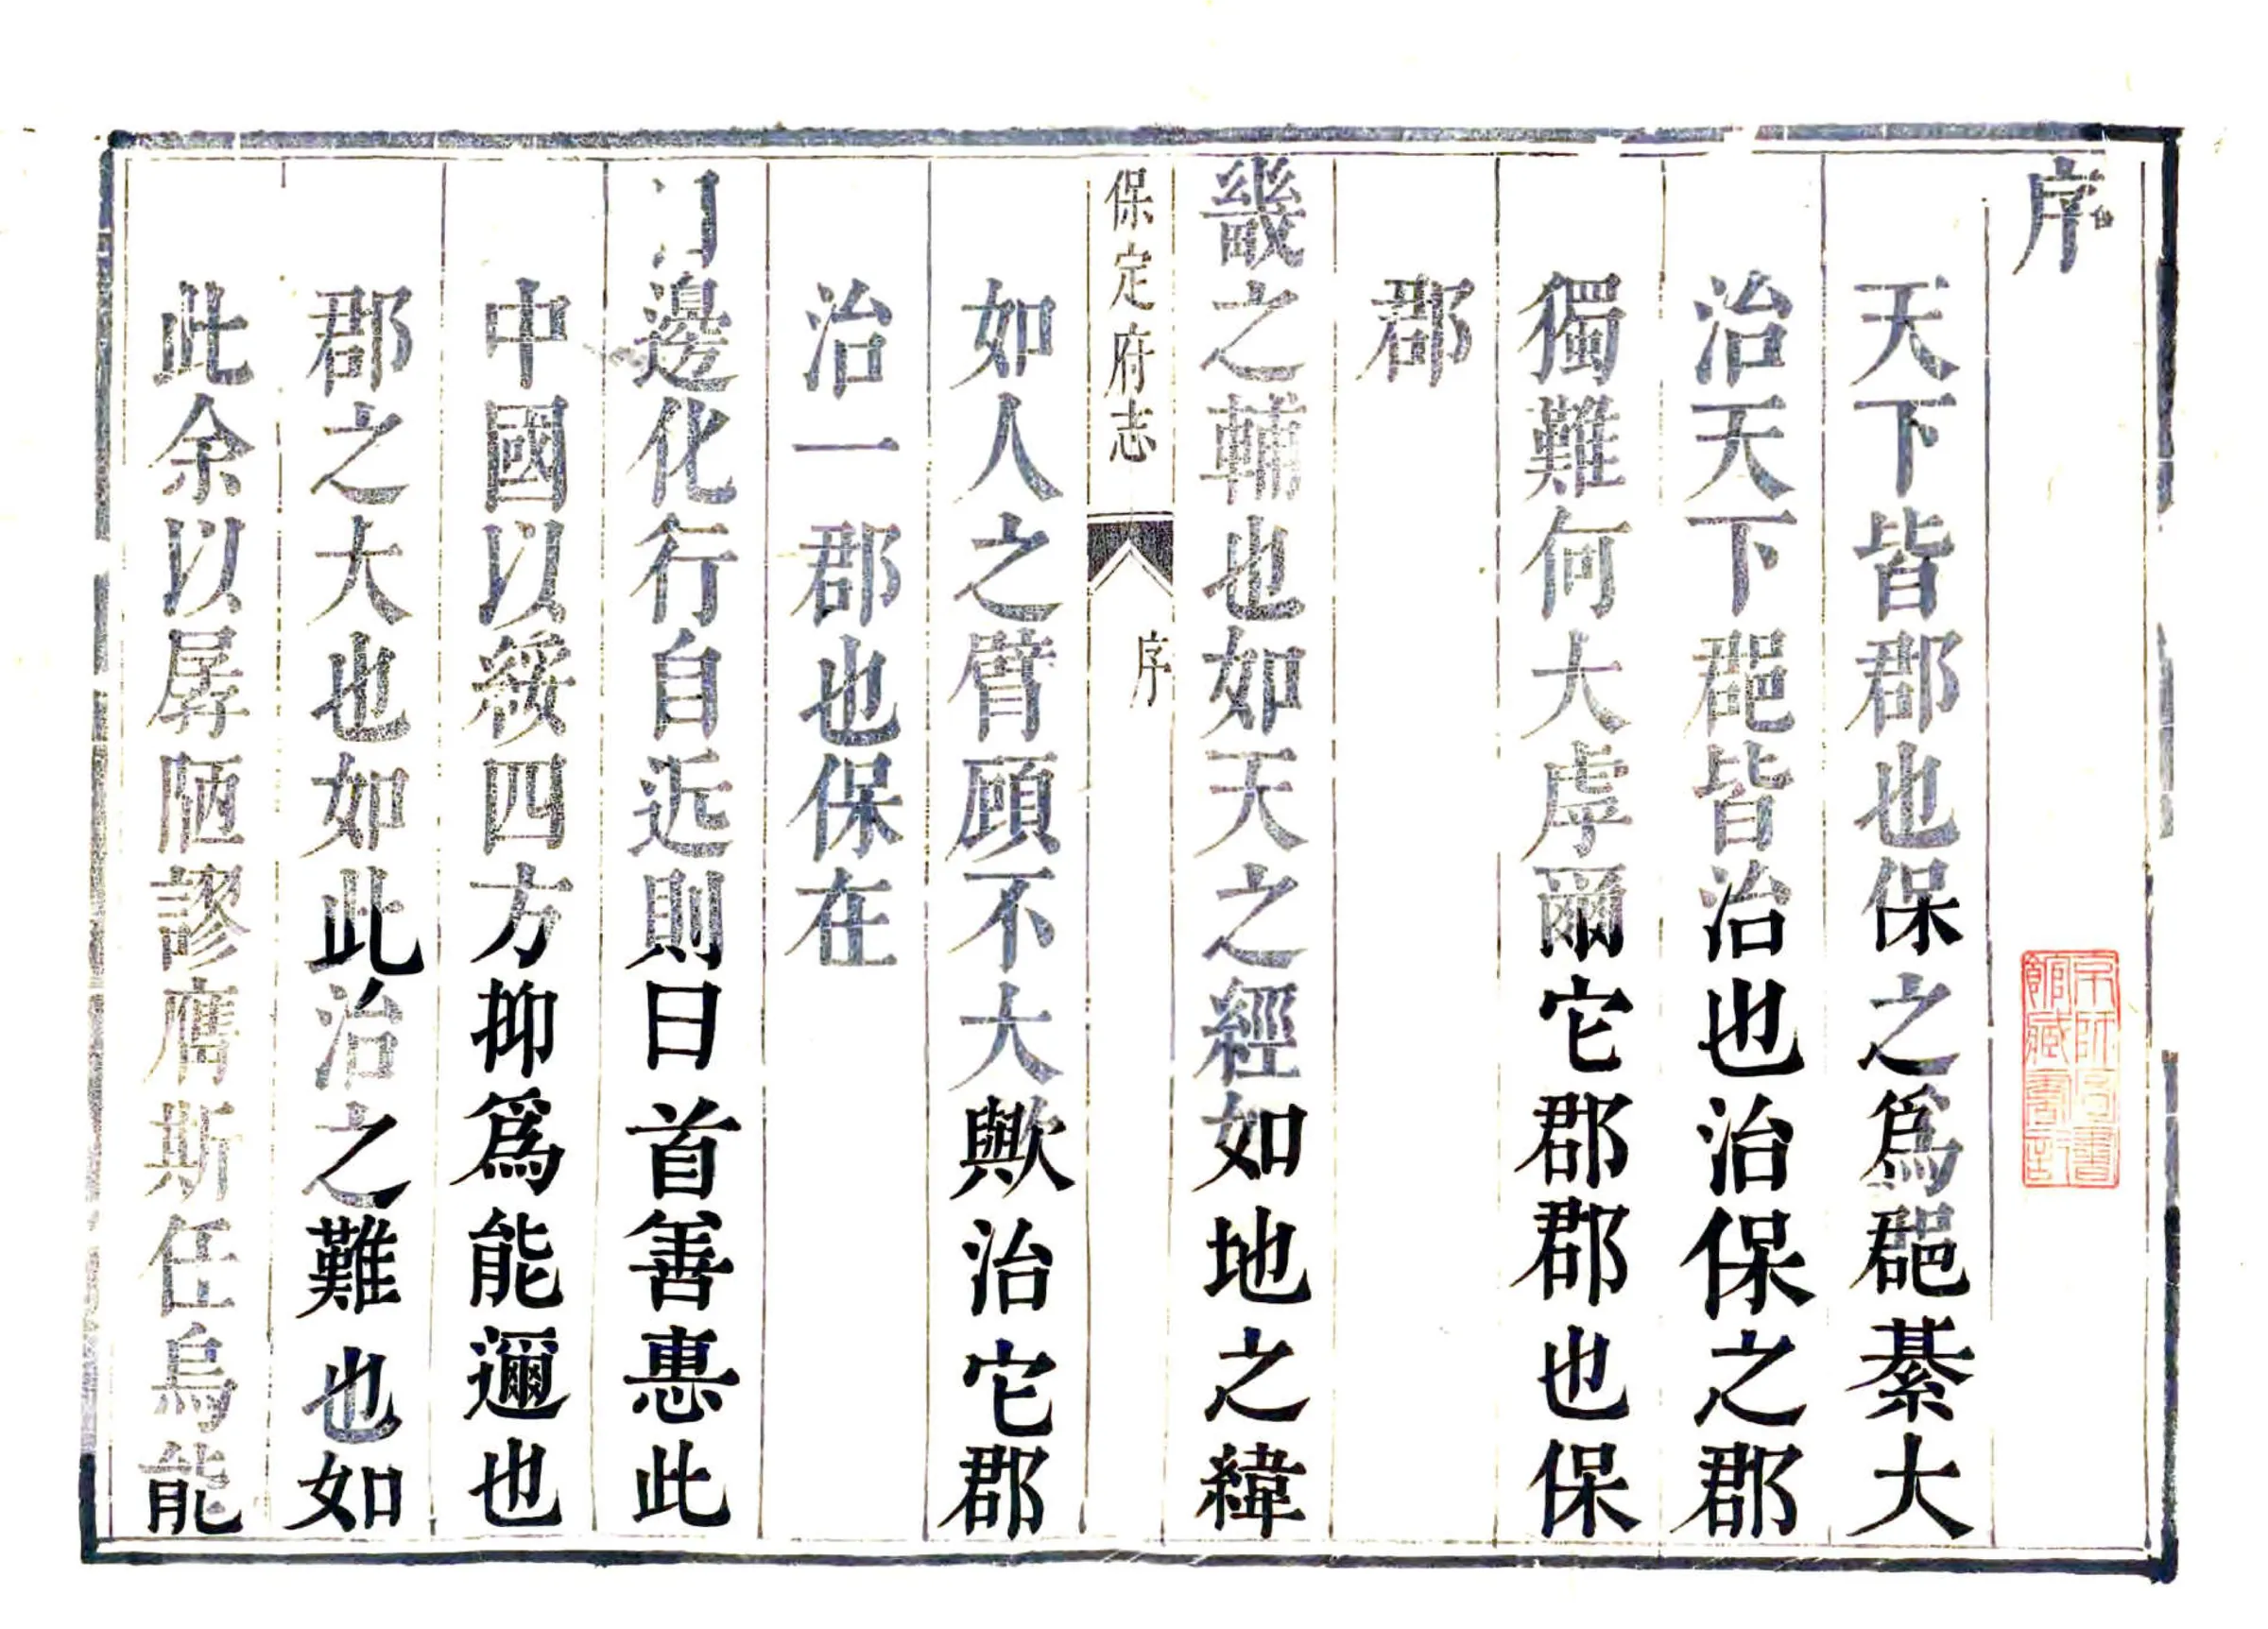 序
天下皆郡也保之爲郡綦大
治天下郡皆治也治保之郡
獨難何大虖爾它郡郡也保
郡
畿之輔也如天之經如地之緯
保定府志 序
如人之臂顧不大歟治它郡
治一郡也保在
邊化行自近則曰首善惠此
中國以綏四方抑爲能邇也
郡之大也如此治之難也如
此余以孱陋謬膺斯任烏能
京師圖書
館藏書記